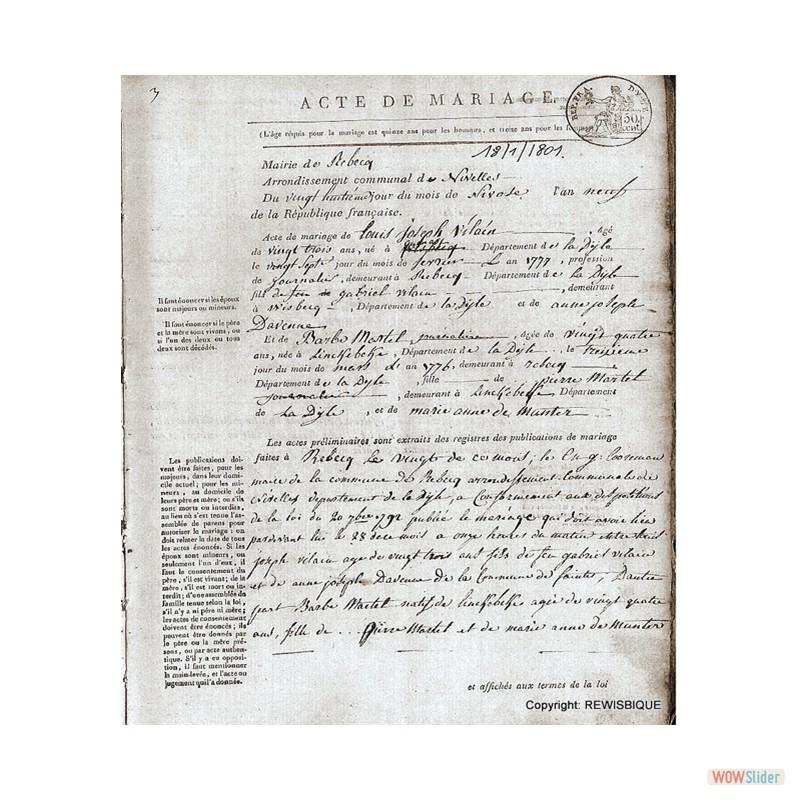 3
ACTE DE MARIAGE.
REP. FRA.
50
cent.
(L'âge réquis pour le mariage est quinze ans pour les hommes, et treize ans pour les femmes.)
18/1/1801.
Mairie de Rebecq
Arrondissement communal de Nivelles
Du vingt huitième jour du mois de Nivose l'an neuf
de la République française.
Acte de mariage de Louis Joseph Vilain, âgé
de vingt trois ans, né à Département de la Dyle
le vingt sept jour du mois de fevrier L an 1777, profession
de journalier, demeurant à Rebecq Département de la Dyle
fils de feu gabriel vilain, demeurant
à wisbecq, Département de la dyle et de anne joseph
Davenne
Et de Barbe Martel journaliere, âgée de vingt quatre
ans, née à Linckebeke, Département de la Dyle, le treizieme
jour du mois de mars L an 1776, demeurant à rebecq
Département de la Dyle, fille de pierre Martel
journalier, demeurant à Linckebeke Département
de La Dyle, et de marie anne de Munter
Les actes préliminaires sont extraits des registres des publications de mariage
faites à Rebecq Le vingt de ce mois, le
maire de la commune de Rebecq arrondissement Communale de
Nivelles departement de la Dyle, a Conformement aux dispositions
de la loi du 20 7bre 1792 publié le mariage qui doit avoir lieu
pardevant lui le 28 de ce mois a onze heures du matin
joseph vilain age de vingt trois ans fils de feu gabriel vilain
et de anne joseph Davenne de la Commune de Saintes, Dautre
part Barbe Martel natif de linckebeke agée de vingt quatre
ans, fille de ... Pierre Martel et de marie anne de Munter
et affichés aux termes de la loi
Il faut énoncer si les époux
sont majeurs ou mineurs.
Il faut énoncer si le père
et la mère sont vivans, ou
si l'un des deux ou tous
deux sont décédés.
Les publications doi-
vent être faites, pour les
majeurs, dans leur domi-
cile actuel; pour les mi-
neurs, au domicile de
leurs père et mère; ou s'ils
sont morts ou interdits,
au lieu où s'est tenue l'as-
semblée de parens pour
autoriser le mariage : on
doit relater la date de tous
les actes énoncés. Si les
époux sont mineurs, ou
seulement l'un d'eux, il
faut le consentement du
père, s'il est vivant; de la
mère, s'il est mort ou in-
terdit; d'une assemblée de
famille tenue selon la loi,
s'il n'y a ni père ni mère;
les actes de consentement
doivent être énoncés; ils
peuvent être donnés par
le père ou la mère pré-
sens, ou par acte authen-
tique. S'il y a eu opposi-
tion, il faut mentionner
la main-levée, et l'acte ou
jugement qui l'a donnée.
Copyright: REWISBIQUE
WOWSlider